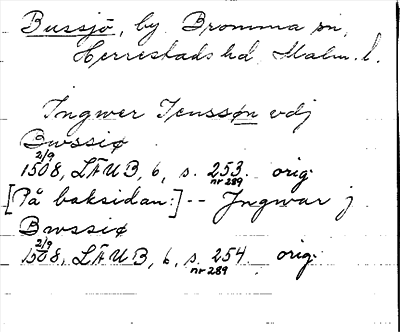 Bussjö, by, Bromma sn,
Herrestads hd, Malm. l.
Ingwer Jenssøn vdj
Bwssiø
2/9
1508, LÄUB, 6, s. 253. orig.
nr 289
[På baksidan:] -- Jngwar j
Bwssiø
2/9
1508, LÄUB, 6, s. 254. orig.
nr 289